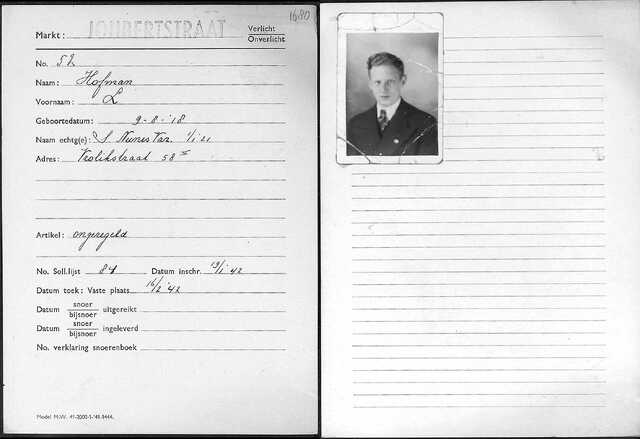 1680
Markt: JOUBERTSTRAAT Verlicht
Onverlicht
No. 52
Naam: Hofman
Voornaam: L
Geboortedatum: 9-8-'18
Naam echtg(e): S. Nunes Vaz. 1/1 21
Adres: Vrolikstraat 58 II
Artikel: ongeregeld
No. Soll.lijst 84 Datum inschr. 19/1 '42
Datum toek: Vaste plaats 16/2 '42
Datum snoer
bijsnoer uitgereikt
Datum snoer
bijsnoer ingeleverd
No. verklaring snoerenboek
Model M.W. 41-2000-1-'41-9444.